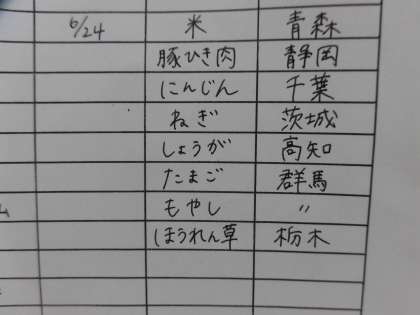 6/24 米 青森
豚ひき肉 静岡
にんじん 千葉
ねぎ 茨城
しょうが 高知
たまご 群馬
もやし 〃
ほうれん草 栃木